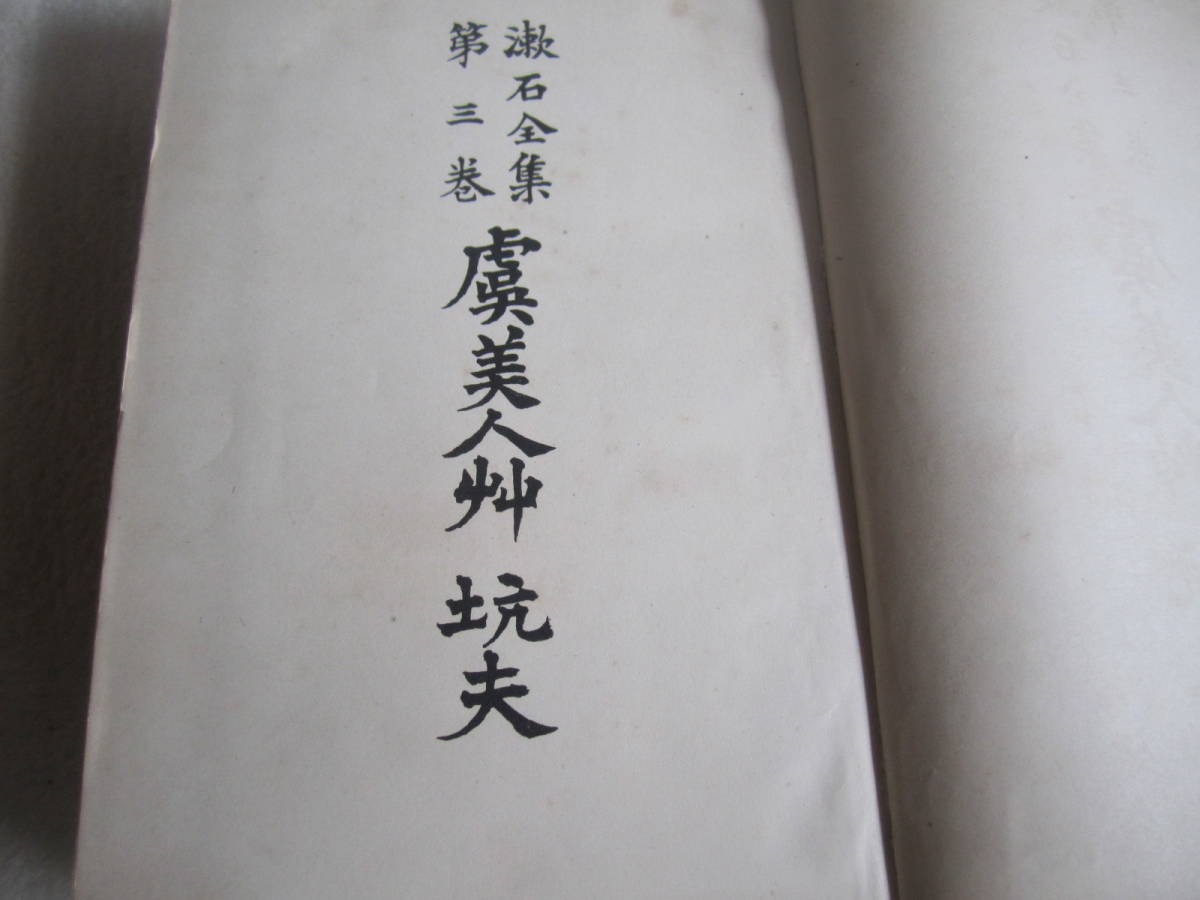 漱石全集
第三巻
虞美人艸 坑夫